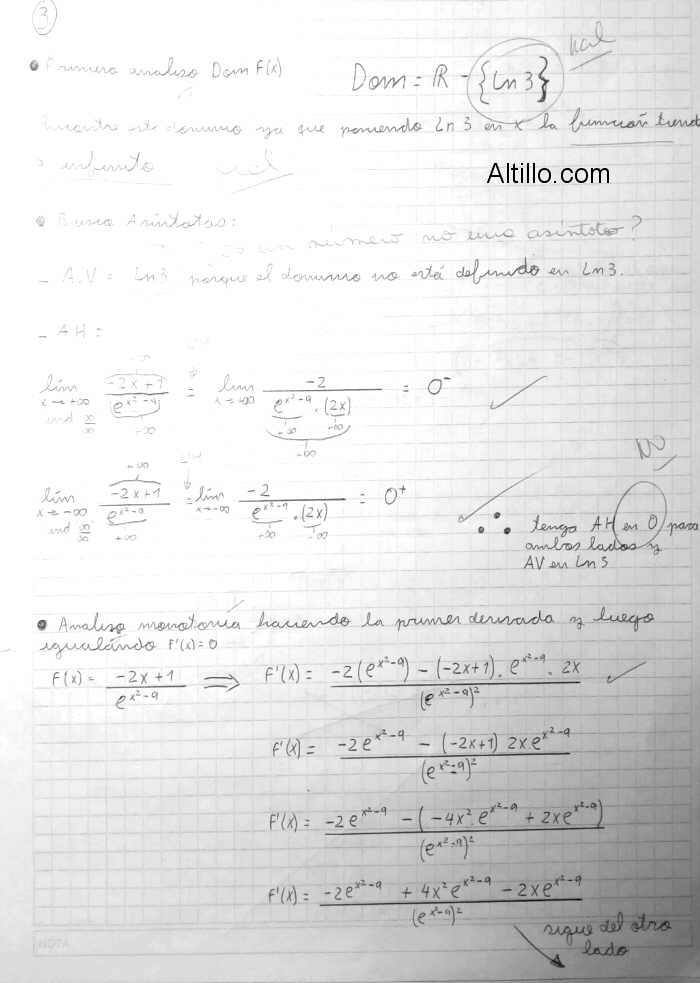 3
• Primero analizo Dom F(x)
Dom = R - {Ln 3}
mal
Encontre este dominio ya que poniendo Ln 3 en x la función tiende
a infinito
mal
Altillo.com
• Busco Asíntotas:
es un número no una asíntota?
- A.V = Ln3 porque el dominio no está definido en Ln 3.
- AH:
lím x→+∞ -2x+1 / e^(x²-9) = lím x→+∞ -2 / e^(x²-9) · (2x) = 0⁻
ind ∞/∞
NO
lím x→-∞ -2x+1 / e^(x²-9) = lím x→-∞ -2 / e^(x²-9) · (2x) = 0⁺
ind ∞/∞
∴ tengo AH en 0 para
ambos lados y
AV en Ln 3
• Analizo monotonía haciendo la primer derivada y luego
igualándo F'(x)=0
F(x) = -2x+1 / e^(x²-9) ⟹ F'(x) = -2(e^(x²-9)) - (-2x+1) · e^(x²-9) · 2x / (e^(x²-9))²
F'(x) = -2e^(x²-9) - (-2x+1) 2x e^(x²-9) / (e^(x²-9))²
F'(x) = -2e^(x²-9) - (-4x² · e^(x²-9) + 2xe^(x²-9)) / (e^(x²-9))²
F'(x) = -2e^(x²-9) + 4x² e^(x²-9) - 2xe^(x²-9) / (e^(x²-9))²
sigue del otro
lado
NOTA